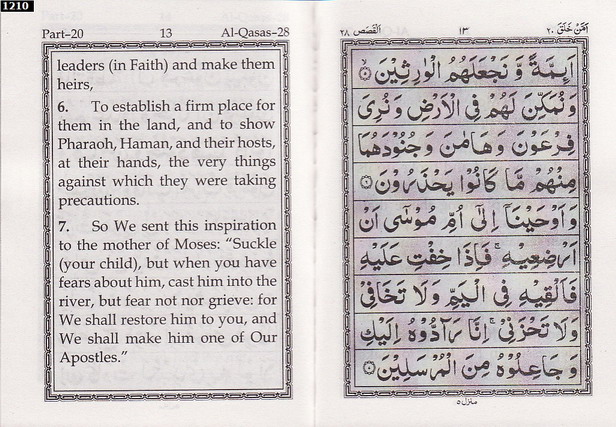 1210
Part–20 13 Al-Qasas–28
leaders (in Faith) and make them
heirs,
6. To establish a firm place for
them in the land, and to show
Pharaoh, Haman, and their hosts,
at their hands, the very things
against which they were taking
precautions.
7. So We sent this inspiration
to the mother of Moses: “Suckle
(your child), but when you have
fears about him, cast him into the
river, but fear not nor grieve: for
We shall restore him to you, and
We shall make him one of Our
Apostles.”
اَمَّنْ خَلَقَ ٢٠ ١٣ اَلْقَصَص ٢٨
اَئِمَّةً وَّ نَجْعَلَهُمُ الْوٰرِثِيْنَ ۝
وَ نُمَكِّنَ لَهُمْ فِی الْاَرْضِ وَ نُرِیَ
فِرْعَوْنَ وَ هَامٰنَ وَ جُنُوْدَهُمَا
مِنْهُمْ مَّا كَانُوْا يَحْذَرُوْنَ ۝
وَ اَوْحَيْنَاۤ اِلٰۤی اُمِّ مُوْسٰۤی اَنْ
اَرْضِعِيْهِ ۚ فَاِذَا خِفْتِ عَلَيْهِ
فَاَلْقِيْهِ فِی الْيَمِّ وَ لَا تَخَافِیْ
وَ لَا تَحْزَنِیْ ۚ اِنَّا رَآدُّوْهُ اِلَيْكِ
وَ جَاعِلُوْهُ مِنَ الْمُرْسَلِيْنَ ۝
منزل ٥